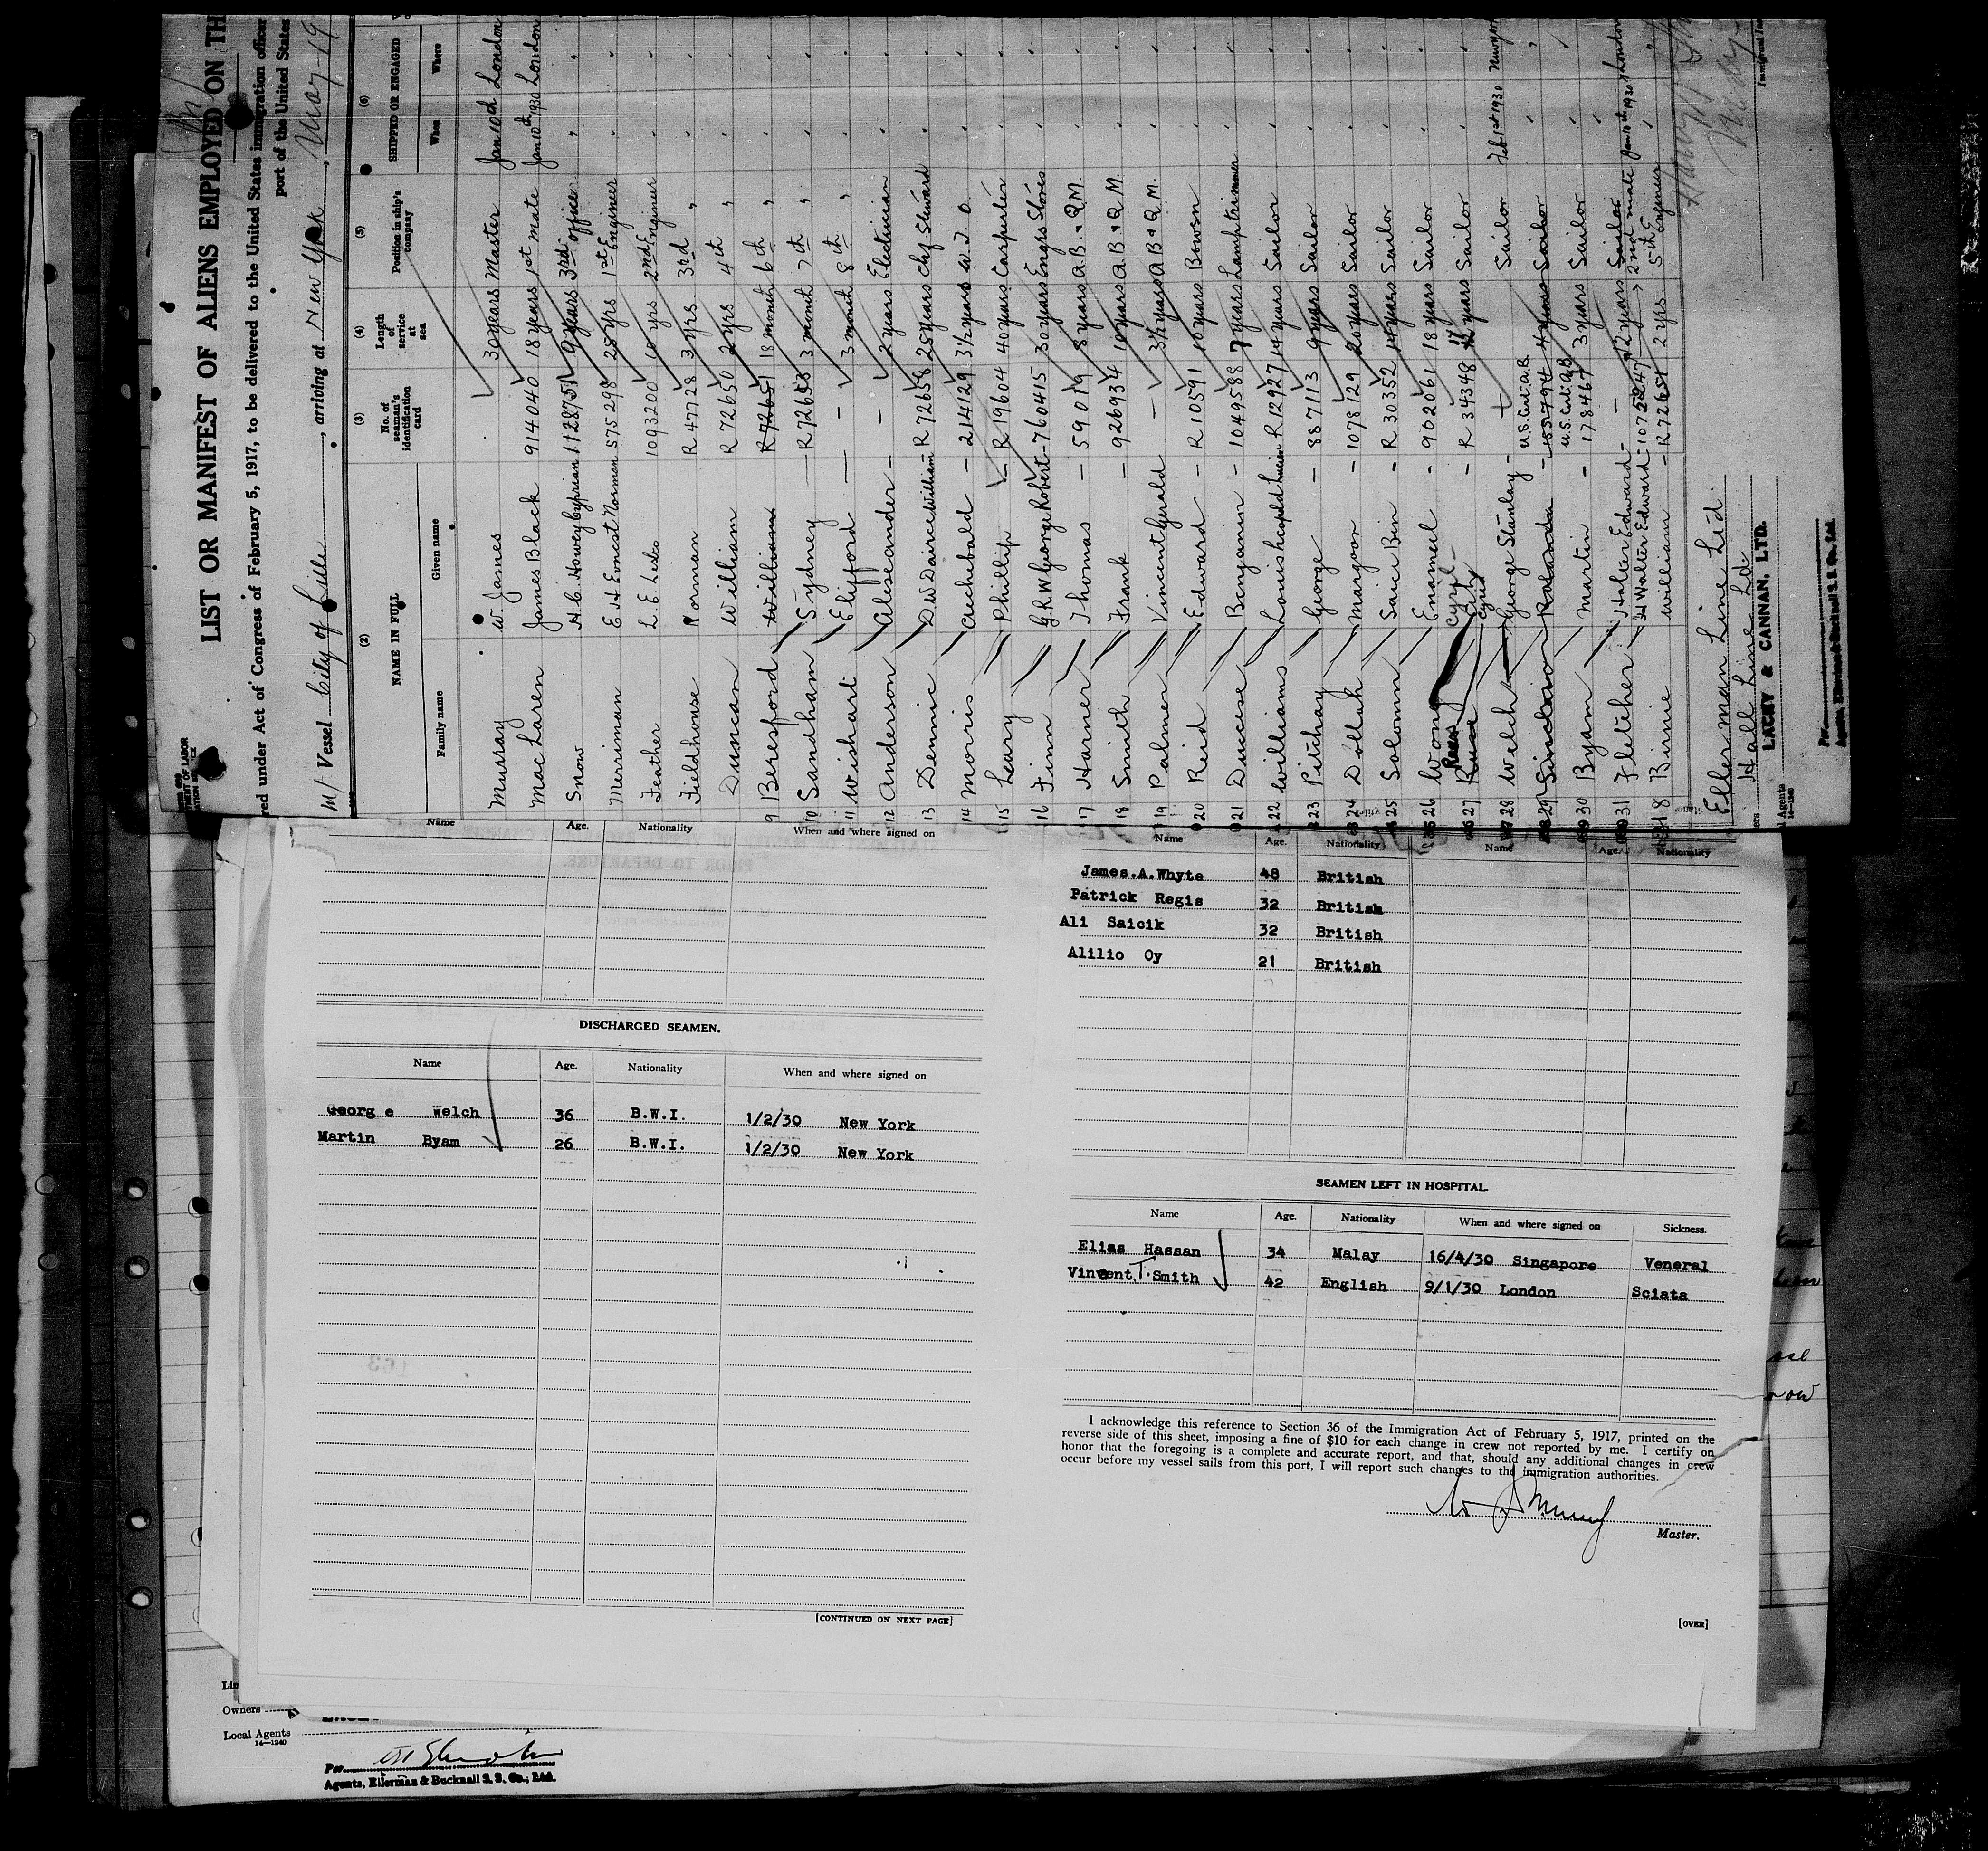 LIST OR MANIFEST OF ALIENS EMPLOYED ON TH
red under Act of Congress of February 5, 1917, to be delivered to the United States immigration officer
port of the United States
M/ Vessel City of Lille, arriving at New York, May-19
(2) (3) (4) (5) (6)
NAME IN FULL No. of seaman's identification card Length of service at sea Position in ship's company SHIPPED OR ENGAGED
Family name Given name When Where
Murray W. James 30 years Master Jan 10th London
MacLaren James Black 914040 18 years 1st mate Jan 10th 1930 London
Snow H.C. Howey Cyprian 1128751 9 years 3rd officer " "
Merriman E H Ernest Norman 575298 25 yrs 1st Engineer
Feather L. E. Lisle 1093200 10 yrs 2nd Engineer
Fieldhouse Norman R 47728 3 yrs 3rd "
Duncan William R 72650 2 yrs 4th "
9 Beresford William R 72651 18 month 6th "
10 Sandham Sydney — R 72653 3 month 7th "
11 Wishart Clifford — — 3 month 8th "
12 Anderson Alexander — — 2 years Electrician
13 Dennic D.W Dairce William - R 72658 25 years Chf. Steward
14 Morris Archibald - 214129 3½ years W.T.O.
15 Leary Phillip - R 19604 40 years Carpenter
16 Finn G.R.W George Robert - 760415 30 years Engrs Stores
17 Harner Thomas - 59019 8 years A.B. & Q.M.
18 Smith Frank - 926934 10 years A.B. & Q.M.
19 Palmer Vincent Gerald - 3½ years A.B & Q.M.
20 Reid Edward - R 10591 10 years Bowsn
21 Ducese Benjamin - 1049588 7 years Lamptrimmer
22 Williams Louis R 12927 14 years Sailor
23 Pitchay George - 887113 9 years Sailor
24 Dollah Margoor - 1078129 20 years Sailor
25 Solomn Sarici Bin - R 30352 14 years Sailor
26 Wong Enameel - 902061 18 years Sailor
27 Cyril - R 34348 years Sailor
28 Welch George Stanlay - Sailor Feb 1st 1930 New york
U.S. Cert. A.B.
29 Sinclair - 155794 4 years Sailor
U.S. Cert. A.B.
30 Byam Martin - 178467 3 years Sailor
31 Fletcher Walter Edward - - 12 years Sailor
Walter Edward - 2nd mate Jan 10th 1930 London
8 Birnie William - R 72651 2 yrs. 5th Engineer
Ellerman Line Ltd.
Hall Line Ld
l Agents LACHY & CANNAN, LTD.
Per
Agents, Ellerman & Bucknall S. S. Co. Ltd.
Name Age. Nationality When and where signed on
Name Age. Nationality Name Age. Nationality
James.A.Whyte 48 British
Patrick Regis 32 British
Ali Saicik 32 British
Alilio Oy 21 British
DISCHARGED SEAMEN.
Name Age. Nationality When and where signed on
George Welch 36 B.W.I. 1/2/30 New York
Martin Byam 26 B.W.I. 1/2/30 New York
[CONTINUED ON NEXT PAGE]
SEAMEN LEFT IN HOSPITAL.
Name Age. Nationality When and where signed on Sickness.
Elias Hassan 34 Malay 16/4/30 Singapore Veneral
Vincent T. Smith 42 English 9/1/30 London Sciata
I acknowledge this reference to Section 36 of the Immigration Act of February 5, 1917, printed on the
reverse side of this sheet, imposing a fine of $10 for each change in crew not reported by me. I certify on
honor that the foregoing is a complete and accurate report, and that, should any additional changes in crew
occur before my vessel sails from this port, I will report such changes to the immigration authorities.
Master.
[OVER]
Lin
Owners
Local Agents
14—1240
Per
Agents, Ellerman & Bucknall S. S. Co., Ltd.